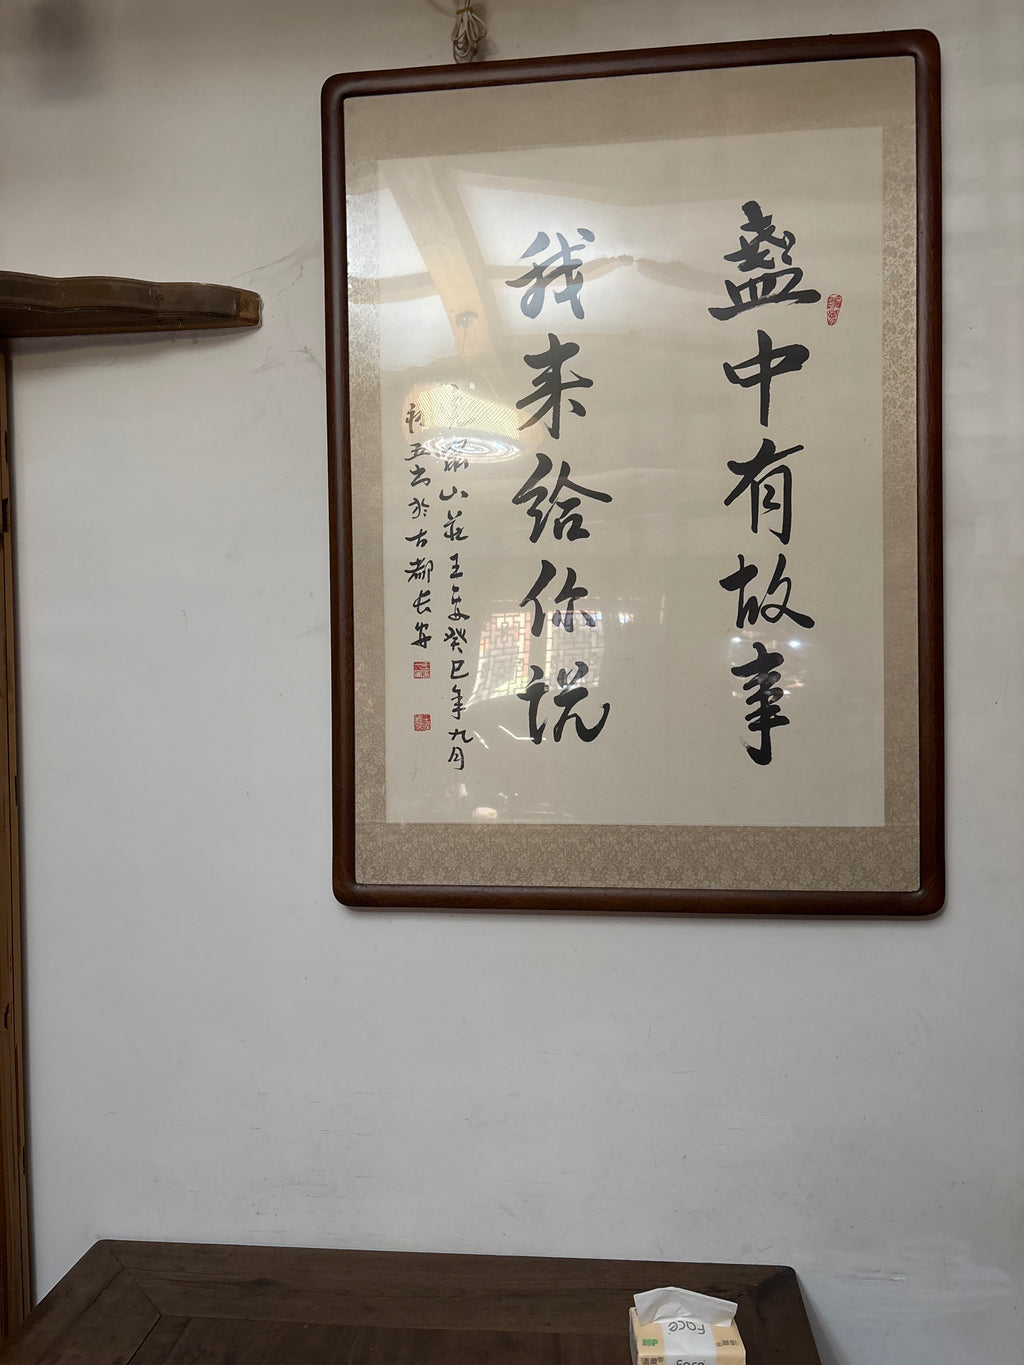 盏中有故事
我来给你说
山莊王安癸巳年九月
初五书於古都长安
Face